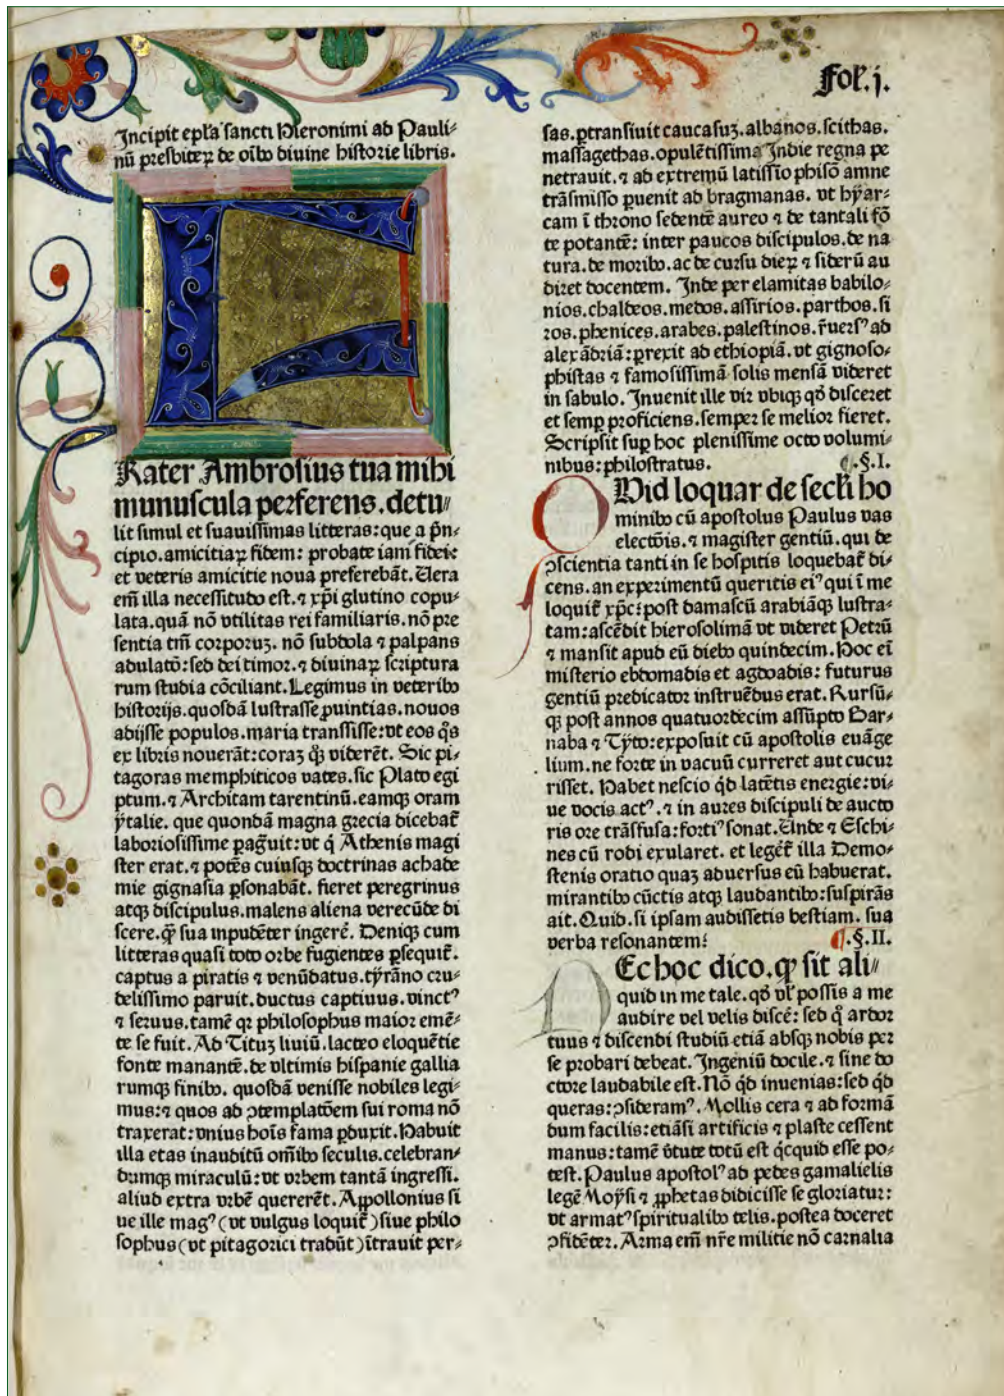 Fol. j.
Incipit epl̃a sancti Hieronimi ad Pauli⸗
nū presbiteꝝ de oĩbꝰ diuine historie libris.
F
Rater Ambrosius tua mihi
munuscula perferens. detu⸗
lit simul et suauissimas litteras: que a pñ⸗
cipio. amicitiaꝝ fidem: probate iam fidei:
et veteris amicitie noua preferebāt. Uera
em̄ illa necessitudo est. ⁊ xp̄i glutino copu⸗
lata. quā nō vtilitas rei familiaris. nō pre
sentia tm̄ corporuꝫ. nō subdola ⁊ palpans
adulatō: sed dei timor. ⁊ diuinaꝝ scriptura
rum studia cōciliant. Legimus in veteribꝰ
historijs. quosdā lustrasse ꝓuintias. nouos
adijsse populos. maria transisse: vt eos qͦs
ex libris nouerāt: coraꝫ qͦꝫ viderēt. Sic pi⸗
tagoras memphiticos vates. sic Plato egi
ptum. ⁊ Architam tarentinū. eamqꝫ oram
ẏtalie. que quondā magna grecia dicebat̄
laboriosissime ꝑag̃uit: vt q̇ Athenis magi
ster erat. ⁊ potēs cuiusqꝫ doctrinas achade
mie gignasia ꝑsonabāt. fieret peregrinus
atqꝫ discipulus. malens aliena verecūde di
scere. qꝫ̄ sua inpudēter ingerē. Deniqꝫ cum
litteras quasi toto orbe fugientes ꝑsequit̄.
captus a piratis ⁊ venūdatus. tẏrāno cru⸗
delissimo paruit. ductus captiuus. vinctꝰ
⁊ seruus. tamē qꝛ philosophus maior emē⸗
te se fuit. Ad Tituꝫ liuiū. lacteo eloquētie
fonte manantē. de vltimis hispanie gallia
rumqꝫ finibꝰ. quosdā venisse nobiles legi⸗
mus: ⁊ quos ad ↄtemplatōem sui roma nō
traxerat: vnius hoīs fama ꝑduxit. Habuit
illa etas inauditū om̄ibꝰ seculis. celebran⸗
dumqꝫ miraculū: vt vrbem tantā ingressi.
aliud extra vrbē quererēt. Appollonius si
ue ille magꝰ (vt vulgus loquit̄) siue philo
sophus (vt pitagorici tradūt) ītrauit per⸗
sas. ꝑtransiuit caucasuꝫ. albanos. scithas.
massagethas. opulētissima Indie regna pe
netrauit. ⁊ ad extremū latissio phisō amne
trāsmisso ꝑuenit ad bragmanas. vt hẏar⸗
cam ī throno sedentē aureo ⁊ de tantali fō
te potantē: inter paucos discipulos. de na
tura. de moribꝰ. ac de cursu dieꝝ ⁊ siderū au
diret docentem. Inde per elamitas babilo⸗
nios. chaldeos. medos. assirios. parthos. si
ros. phenices. arabes. palestinos. r̄uersꝰ ad
alexādriā: prexit ad ethiopiā. vt gignoso⸗
phistas ⁊ famosissimā solis mensā videret
in sabulo. Inuenit ille vir vbiqꝫ qd̓ disceret
et semꝑ proficiens. semper se melior fieret.
Scripsit suꝑ hoc plenissime octo volumi⸗
nibus: philostratus. ¶.§.I.
QVid loquar de secl̓i ho
minibꝰ cū apostolus Paulus vas
electōis. ⁊ magister gentiū. qui de
ↄscientia tanti in se hospitis loquebat̄ di⸗
cens. an experimentū queritis eiꝰ qui ī me
loquit̄ xp̄c: post damascū arabiāqꝫ lustra⸗
tam: ascēdit hierosolimā vt videret Petrū
⁊ mansit apud eū diebꝰ quindecim. Hoc ei
misterio ebdomadis et agdoadis: futurus
gentiū predicator instruēdus erat. Rursū⸗
qꝫ post annos quatuordecim assūpto Bar⸗
naba ⁊ Tẏto: exposuit cū apostolis euāge
lium. ne forte in vacuū curreret aut cucur
risset. Habet nescio qd̓ latētis energie: vi⸗
ue vocis actꝰ. ⁊ in aures discipuli de aucto
ris ore trāsfusa: fortiꝰ sonat. Unde ⁊ Eschi⸗
nes cū rodi exularet. et leger̄t illa Demo⸗
stenis oratio quaꝫ aduersus eū habuerat.
mirantibꝰ cūctis atqꝫ laudantibꝰ: suspirās
ait. Quid. si ipsam audissetis bestiam. sua
verba resonantem: ¶.§.II.
NEc hoc dico. qꝙ sit ali⸗
quid in me tale. qd̓ vl̓ possis a me
audire vel velis discē: sed q̇ ardor
tuus ⁊ discendi studiū etiā absqꝫ nobis per
se probari debeat. Ingeniū docile. ⁊ sine do
ctore laudabile est. Nō qd̓ inuenias: sed qd̓
queras: ↄsideramꝰ. Mollis cera ⁊ ad formā
dum facilis: etiāsi artificis ⁊ plaste cessent
manus: tamē v̓tute totū est qͥcquid esse po⸗
test. Paulus apostolꝰ ad pedes gamalielis
legē Moẏsi ⁊ ꝓphetas didicisse se gloriatur:
vt armatꝰ spiritualibꝰ telis. postea doceret
ↄfidēter. Arma em̄ nr̄e militie nō carnalia